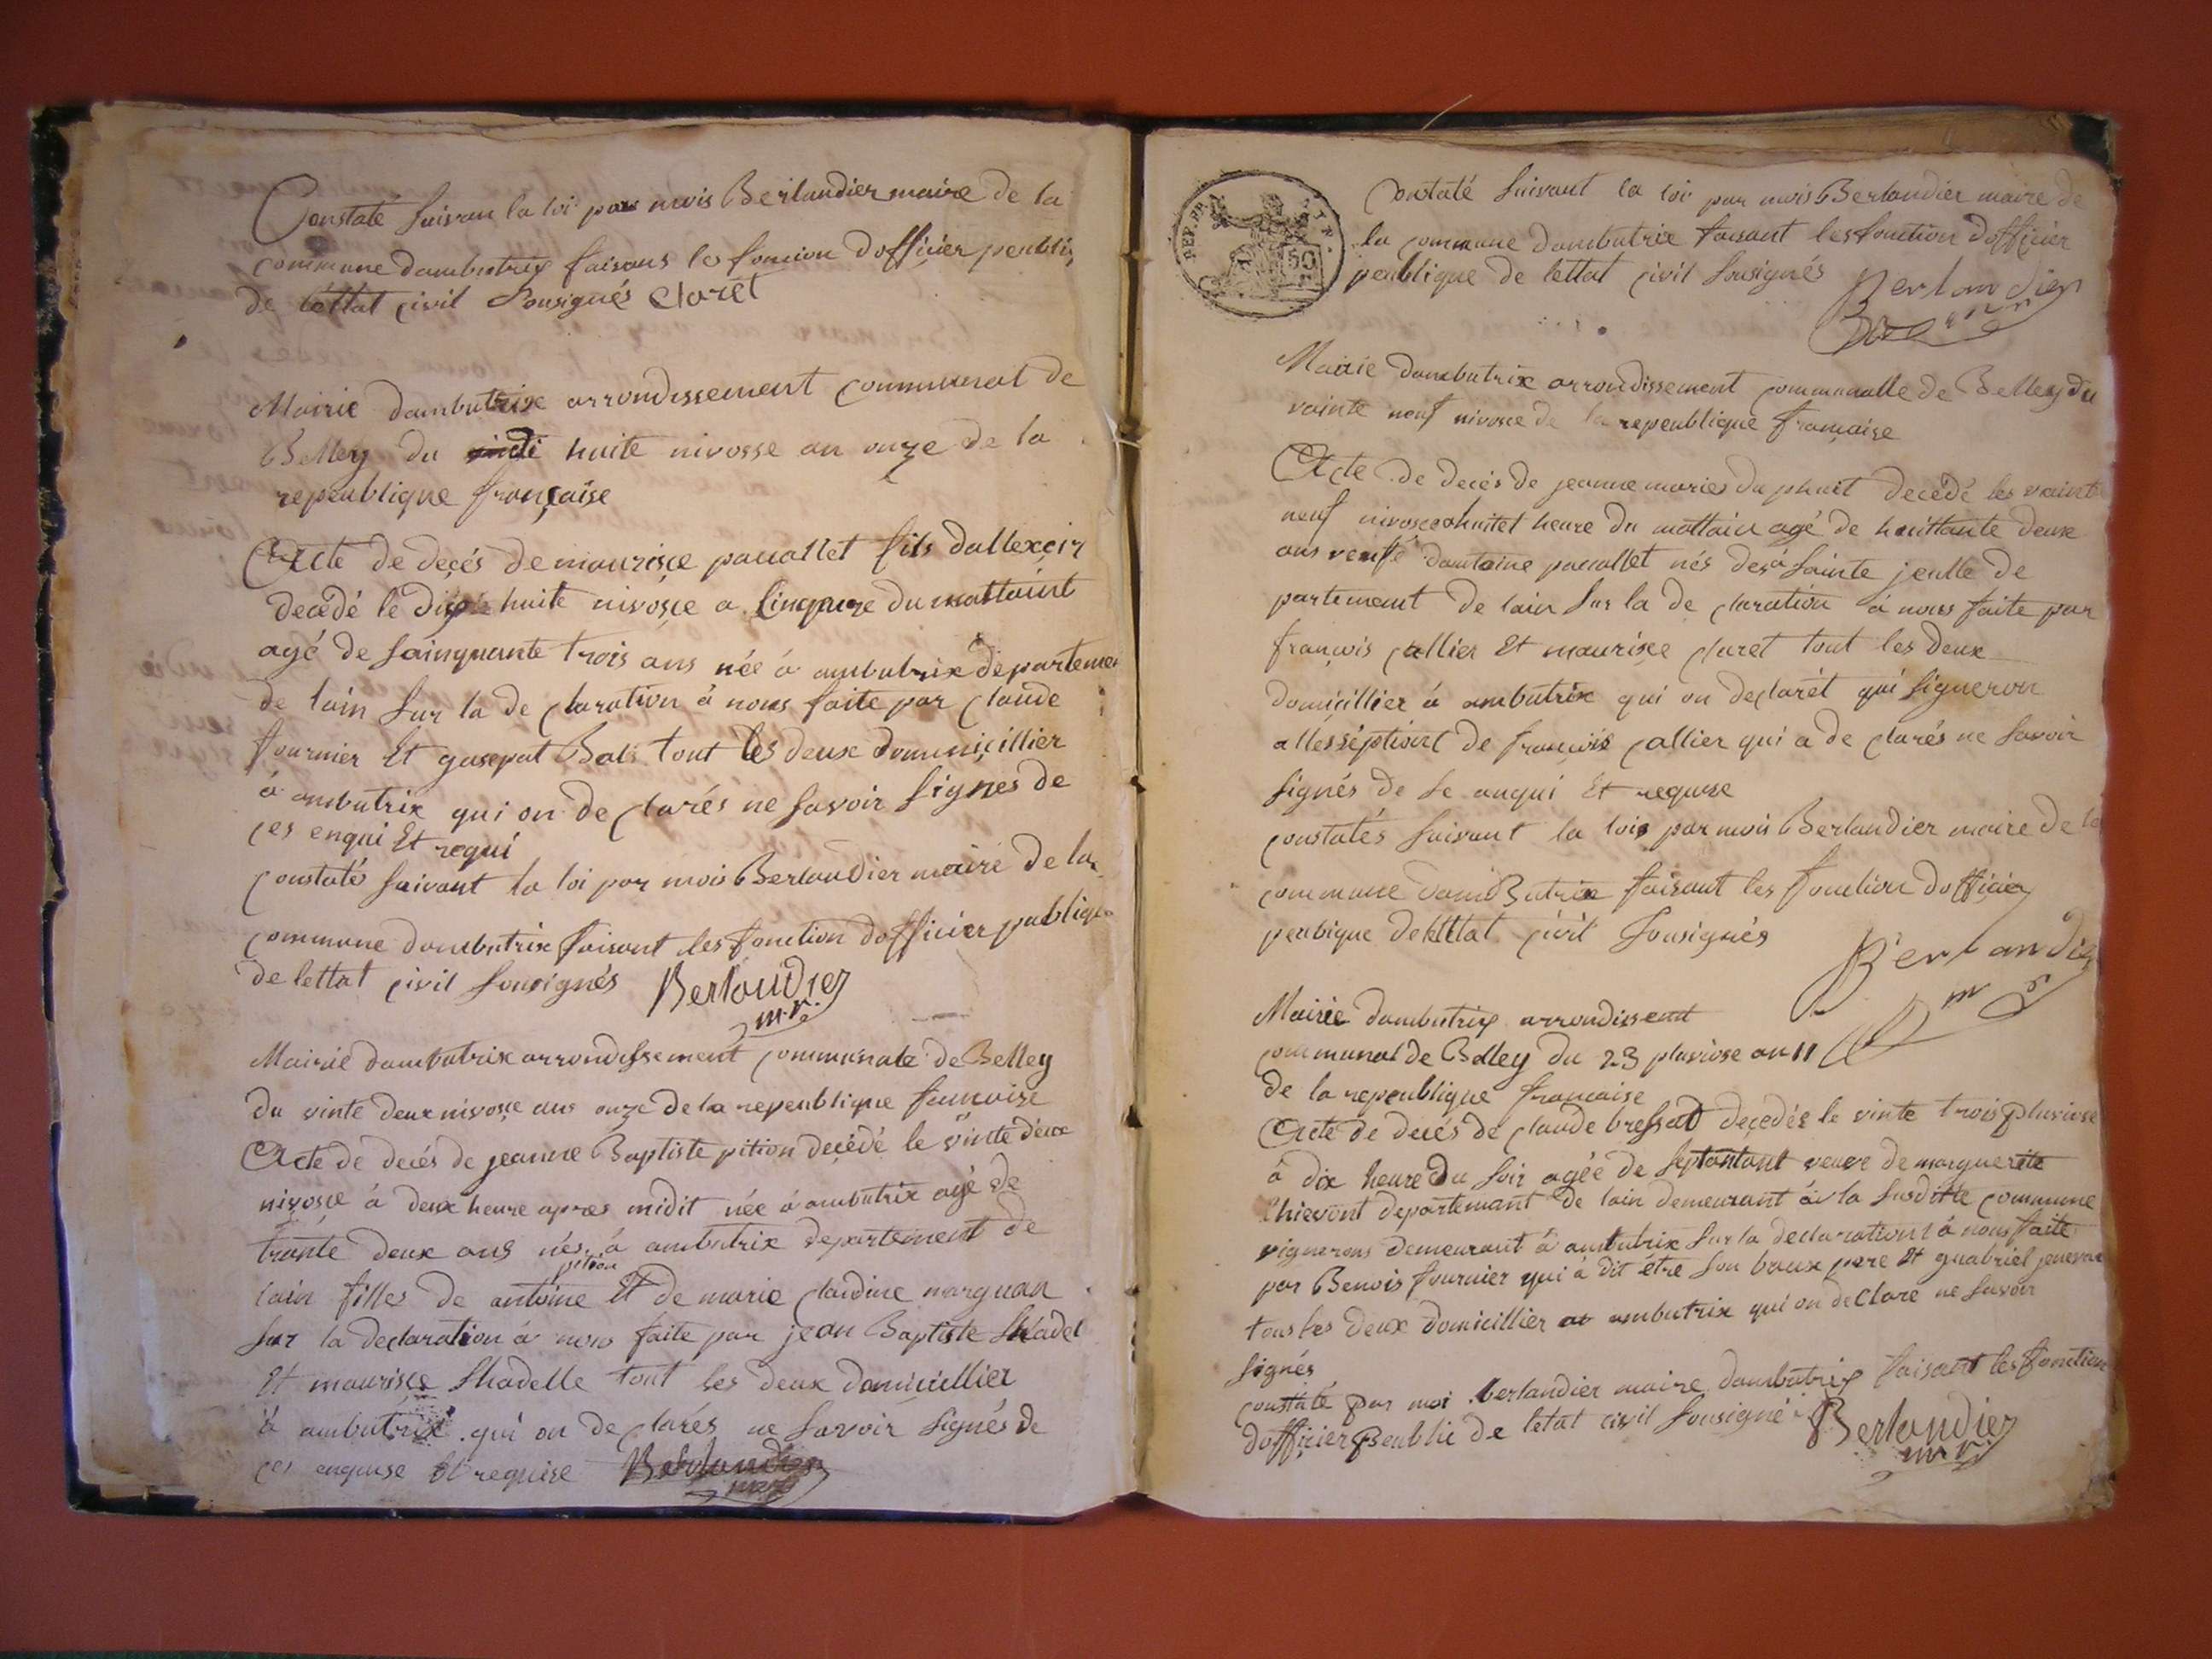 Constaté suivan la loi par mois Berlandier maire de la
commune dambutrix faisans les foncion dofficier peubliq
de léttat civil Sousignés Claret
Mairie dambutrix arrondissement communal de
Belley du huite nivosse an onze de la
repeublique française
Acte de deçés de maurisçe pauallet fils dallexçir
decédé le dix huite nivosçe a du mattaint
agé de sainquante trois ans née á ambutrix departemen
de lain sur la de claration á nous faite par claude
fournier Et Bali tout les deux dominicillier
á ambutrix qui on de clarés ne savoir signes de
ces enqui Et requi
constatés suivant la loi par mois Berlandier maire de la
commune dambutrix faisant les fonction dofficier publique
de lettat civil sousignés Berlandier
m.r.
Mairie dambutrix arrondissement communale de Belley
du vinte deux nivosçe ans onze de la repeublique
Acte de decés de jeanne Baptiste pition deçédé le vinte deux
nivosçe á deux heure apres midit née á ambutrix agé de
trante deux ans nés á ambutrix departement de
pition
lain filles de antoine Et de marie claudine marguan
sur la declaration á nous faite par jean Baptiste
Et maurisçe tout les deux domicillier
á ambutrix qui on de clarés ne savoir signés de
ces enquise Et requise Berlandier
REP. FRA
50
Contaté suivant la loi par mois Berlandier maire de
la commune dambutrix faisant les fonction dofficier
peublique de lettat civil sousignés Berlandier
Mairie dambutrix arrondissement communalle de Belley du
vainte neuf nivosce de la repeublique française
Acte de decés de jeanne maries du phuit decédé les vainte
neuf nivosce a huitet heure du mattain agé de huittante deux
ans veufé dantoine pauallet nés Sainte jeulle de
partement de lain sur la de claration á nous faite par
françois callier Et maurisçe claret tout les deux
domicillier á ambutrix qui on declarét qui signeron
alléséptiont de françois callier qui a de clarés ne savoir
signés de se anqui Et requise
constatés suivant la lois par mois Berlandier maire de la
commune damButrix faisant les fonction dofficier
peubique civil sousignés
Berlandier
Mairie dambutrix arrondissent
communal de Belley du 23 pluviose an 11
de la repeublique francaise
Acte de decés de claude bressat decedée le vinte trois pluviose
á dix heure du soir agée de septantant veuve de marguerite
departemant de lain demeurant á la susditte commune
vignerons demeurant á ambutrix sur la declarationt á nous faite
par Benois fournier qui á dit étre son baux pere Et guabriel
tous les deux domicillier a ambutrix qui on declare ne savoir
signés
constaté par moi berlandier maire dambutrix faisant les fonction
dofficier peublic de létat civil sousigné Berlandier